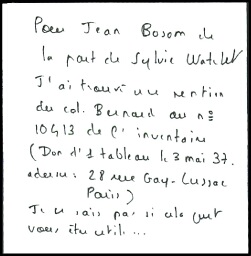 Pour Jean Bosom de
la part de Sylvie Watelet
J'ai trouvé une mention
du col. Bernard au nº
10413 de l'inventaire
(Don d'1 tableau le 3 mai 37.
adresse : 28 rue Gay-Lussac
Paris)
Je ne sais pas si cela peut
vous être utile...